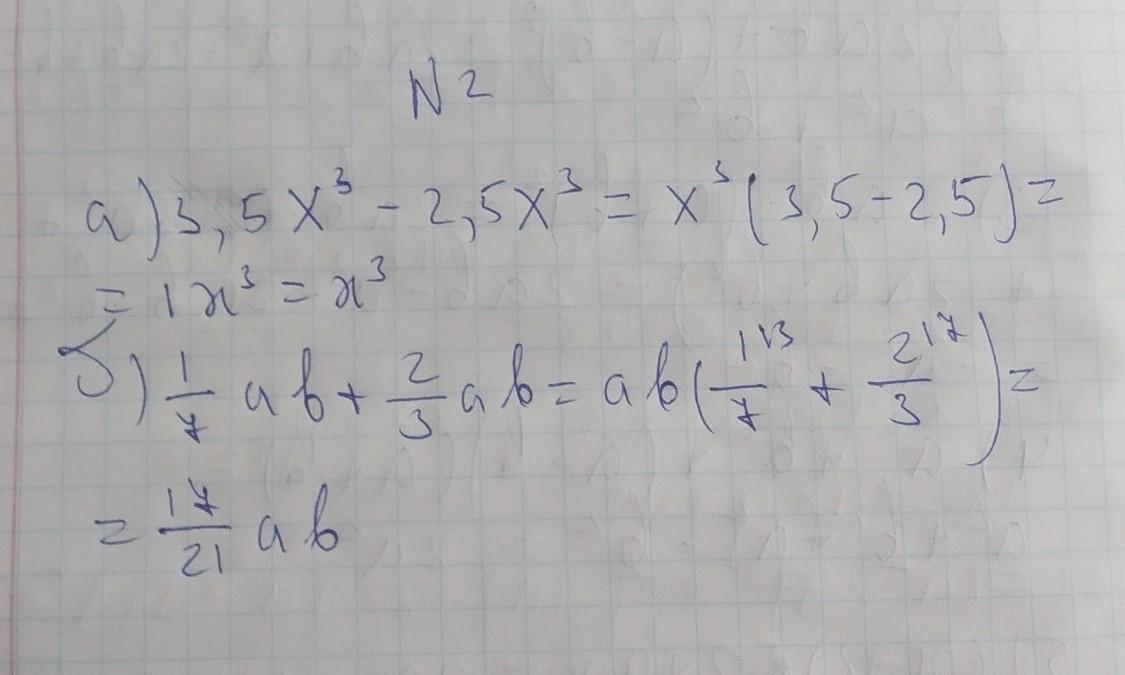 N 2
а) 3,5x³ - 2,5x³ = x³(3,5-2,5) =
= 1x³ = x³
б) 1/7 ab + 2/3 ab = ab(1^{\3}/7 + 2^{\7}/3) =
= 17/21 ab